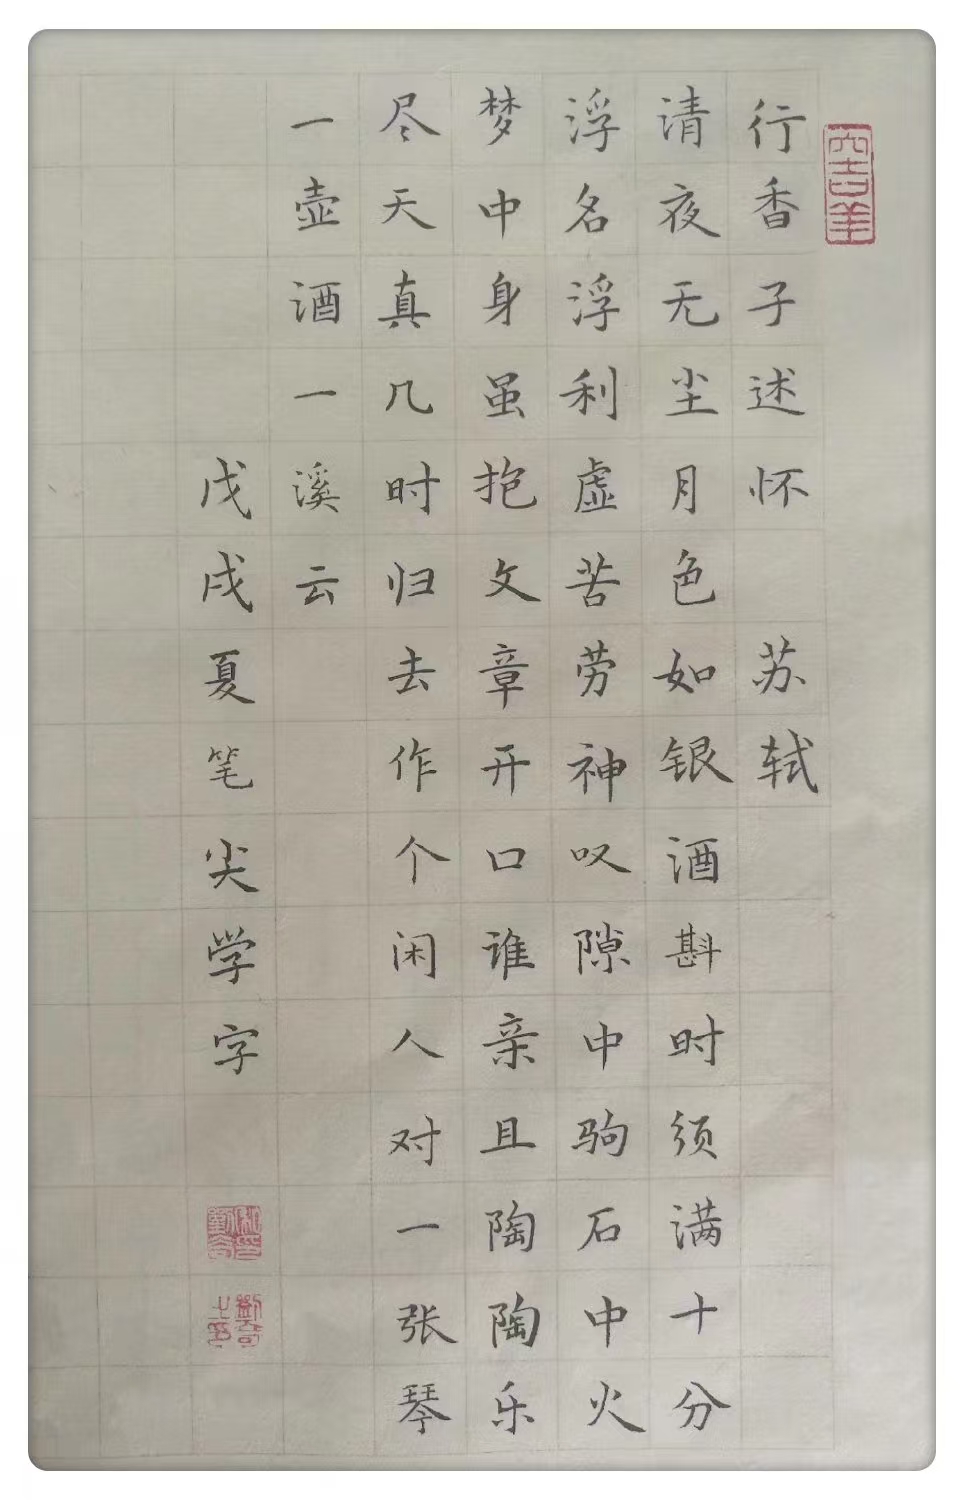 行香子述怀 苏轼
清夜无尘月色如银酒斟时须满十分
浮名浮利虚苦劳神叹隙中驹石中火
梦中身虽抱文章开口谁亲且陶陶乐
尽天真几时归去作个闲人对一张琴
一壶酒一溪云
戊戌夏笔尖学字